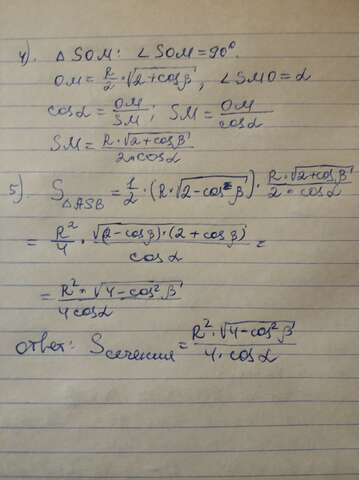 4). △ SOM: ∠SOM = 90°.
OM = R/2 · √(2+cosβ), ∠SMO = α
cosα = OM/SM; SM = OM/cosα
SM = R·√(2+cosβ) / 2·cosα
5). S△ASB = 1/2 · (R·√(2-cosβ)) · R·√(2+cosβ) / 2·cosα
= R²/4 · √((2-cosβ)·(2+cosβ)) / cosα =
= R²·√(4-cos²β) / 4cosα
ответ: Sсечения = R²·√(4-cos²β) / 4·cosα